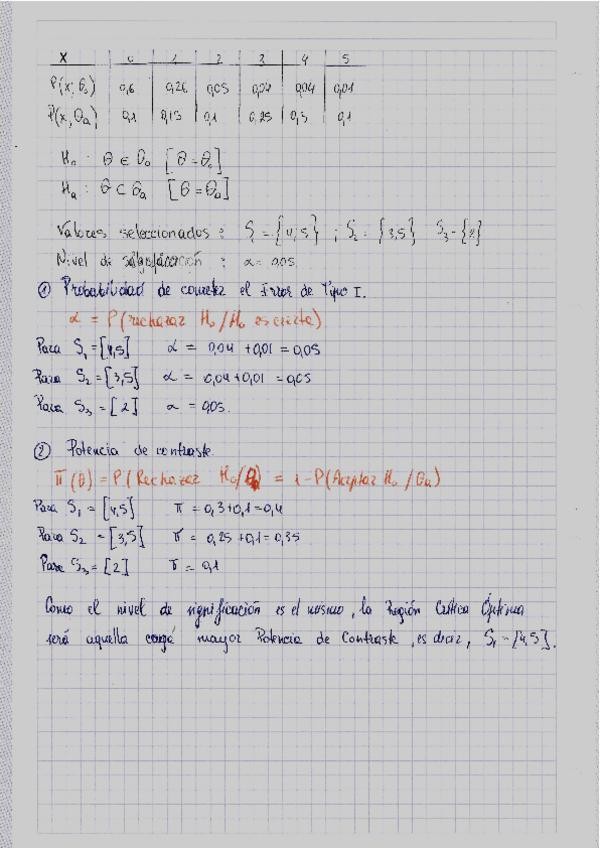 X 0 1 2 3 4 5
P(x; θ₀) 0,6 0,26 0,05 0,04 0,04 0,01
P(x; θa) 0,1 0,15 0,1 0,25 0,3 0,1
H₀ : θ ∈ θ₀ [θ = θ₀]
Ha : θ ⊂ θa [θ = θa]
Valores seleccionados : S₁ = {4,5} ; S₂ = {3,5} S₃ = {2}
Nivel de significación : α = 0,05
① Probabilidad de cometer el Error de Tipo I.
α = P(rechazar H₀ / H₀ es cierta)
Para S₁ = [4,5] α = 0,04 + 0,01 = 0,05
Para S₂ = [3,5] α = 0,04 + 0,01 = 0,05
Para S₃ = [2] α = 0,05.
② Potencia de contraste
π(θ) = P(Rechazar H₀/θa) = 1 - P(Aceptar H₀ / θa)
Para S₁ = [4,5] π = 0,3 + 0,1 = 0,4
Para S₂ = [3,5] π = 0,25 + 0,1 = 0,35
Para S₃ = [2] π = 0,1
Como el nivel de significación es el mismo, la Región Crítica Óptima
será aquella mayor Potencia de Contraste, es decir, S₁ = [4,5].